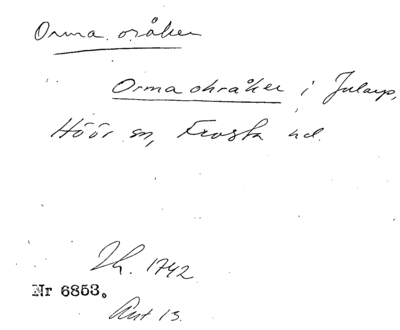 Orma oråken
Ormaohråken i Jularp,
Höör sn, Frosta hd.
Lh. 1742
Nr 6853.
Ant 13.